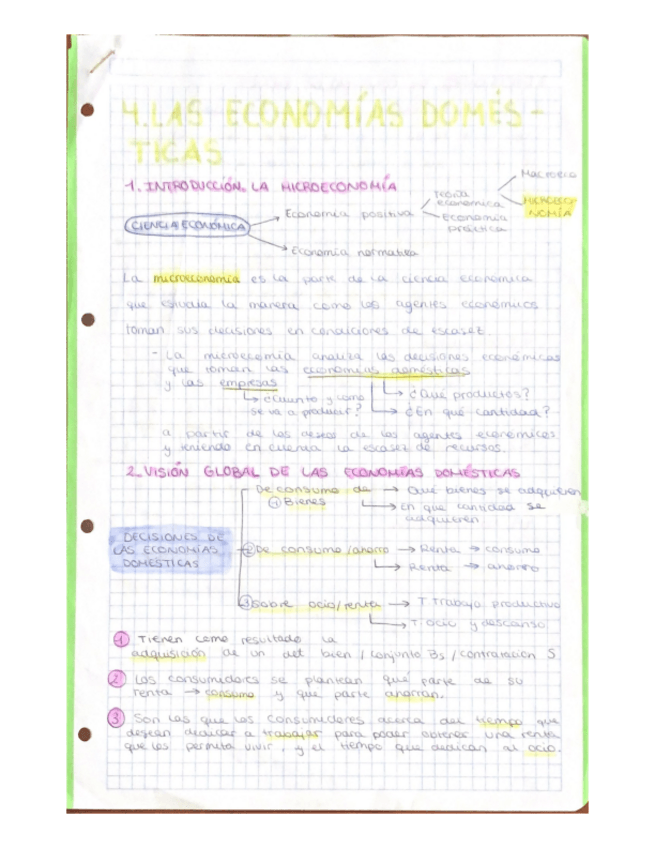 4. LAS ECONOMÍAS DOMÉS-
TICAS
1. INTRODUCCIÓN. LA MICROECONOMÍA
CIENCIA ECONÓMICA
Economía positiva
Teoría
económica
Macroeco
MICROECO-
NOMÍA
Economía
práctica
Economía normativa
La microeconomía es la parte de la ciencia económica
que estudia la manera como los agentes económicos
toman sus decisiones en condiciones de escasez.
- La microecomía analiza las decisiones económicas
que toman las economías domésticas
y las empresas
→ ¿Cuánto y como
se va a producir?
→ ¿Qué productos?
→ ¿En qué cantidad?
a partir de los deseos de los agentes económicos
y teniendo en cuenta la escasez de recursos.
2. VISIÓN GLOBAL DE LAS ECONOMÍAS DOMÉSTICAS
DECISIONES DE
LAS ECONOMÍAS
DOMESTICAS
De consumo de
① Bienes
→ Qué bienes se adquieren
→ En que cantidad se
adquieren
② De consumo/ahorro → Renta → consumo
→ Renta → ahorro
③ Sobre ocio/renta → T. Trabajo productivo
→ T. ocio y descanso
① Tienen como resultado la
adquisición de un det bien / conjunto Bs / contratación S
② Los consumidores se plantean qué parte de su
renta → consumo y que parte ahorran.
③ Son las que los consumidores acerca del tiempo que
desean dedicar a trabajar para poder obtener una renta
que les permita vivir, y el tiempo que dedican al ocio.